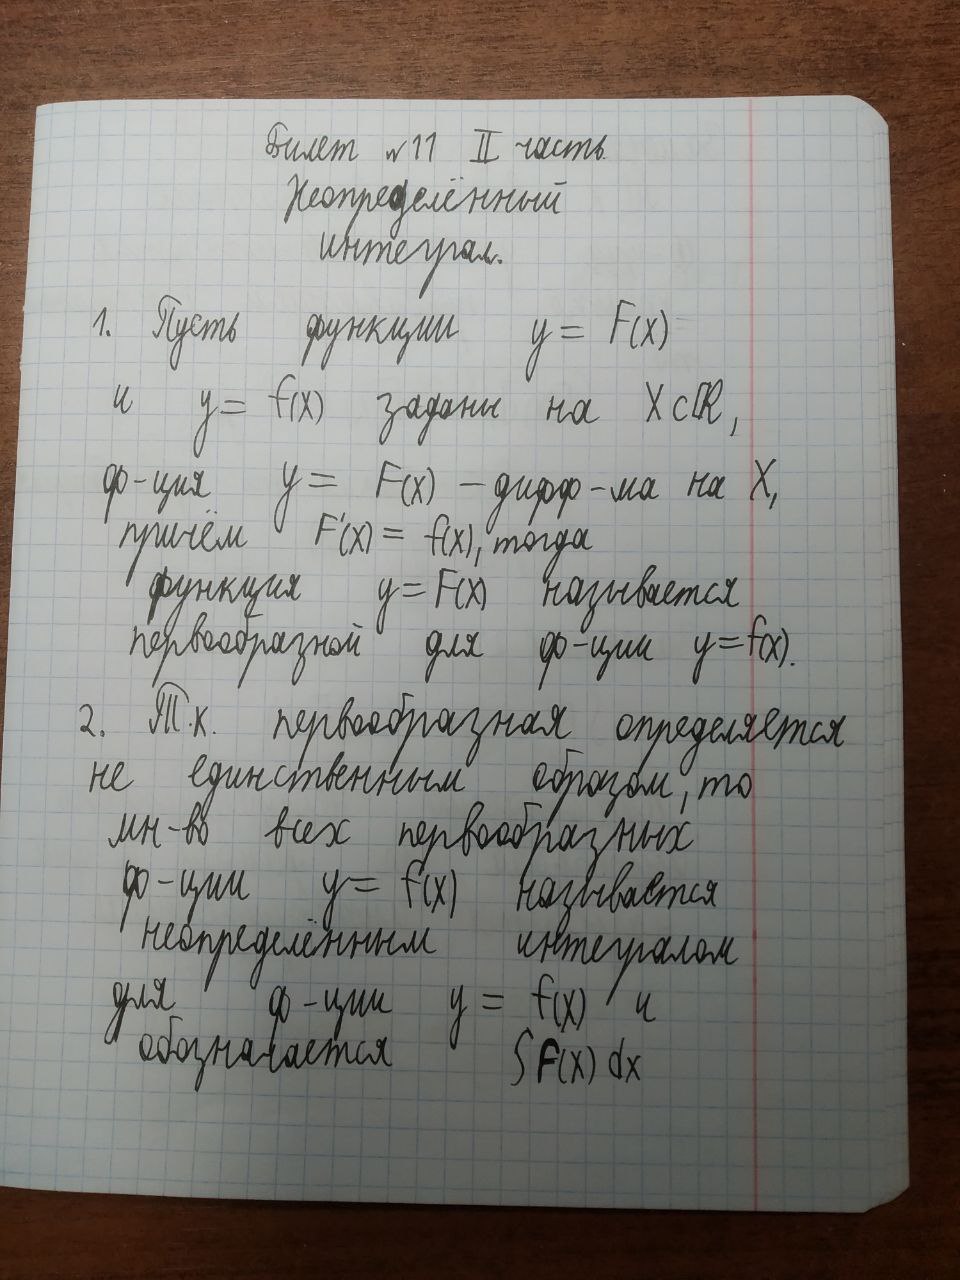 Билет №11 II часть.
Неопределённый
интеграл.
1. Пусть функции y = F(x)
и y = f(x) заданы на X⊂ℝ,
ф-ция y = F(x) – дифф-ма на X,
причём F'(x) = f(x), тогда
функция y = F(x) называется
первообразной для ф-ции y=f(x).
2. Т.к. первообразная определяется
не единственным образом, то
мн-во всех первообразных
ф-ции y = f(x) называется
неопределённым интегралом
для ф-ции y = f(x) и
обозначается ∫F(x) dx